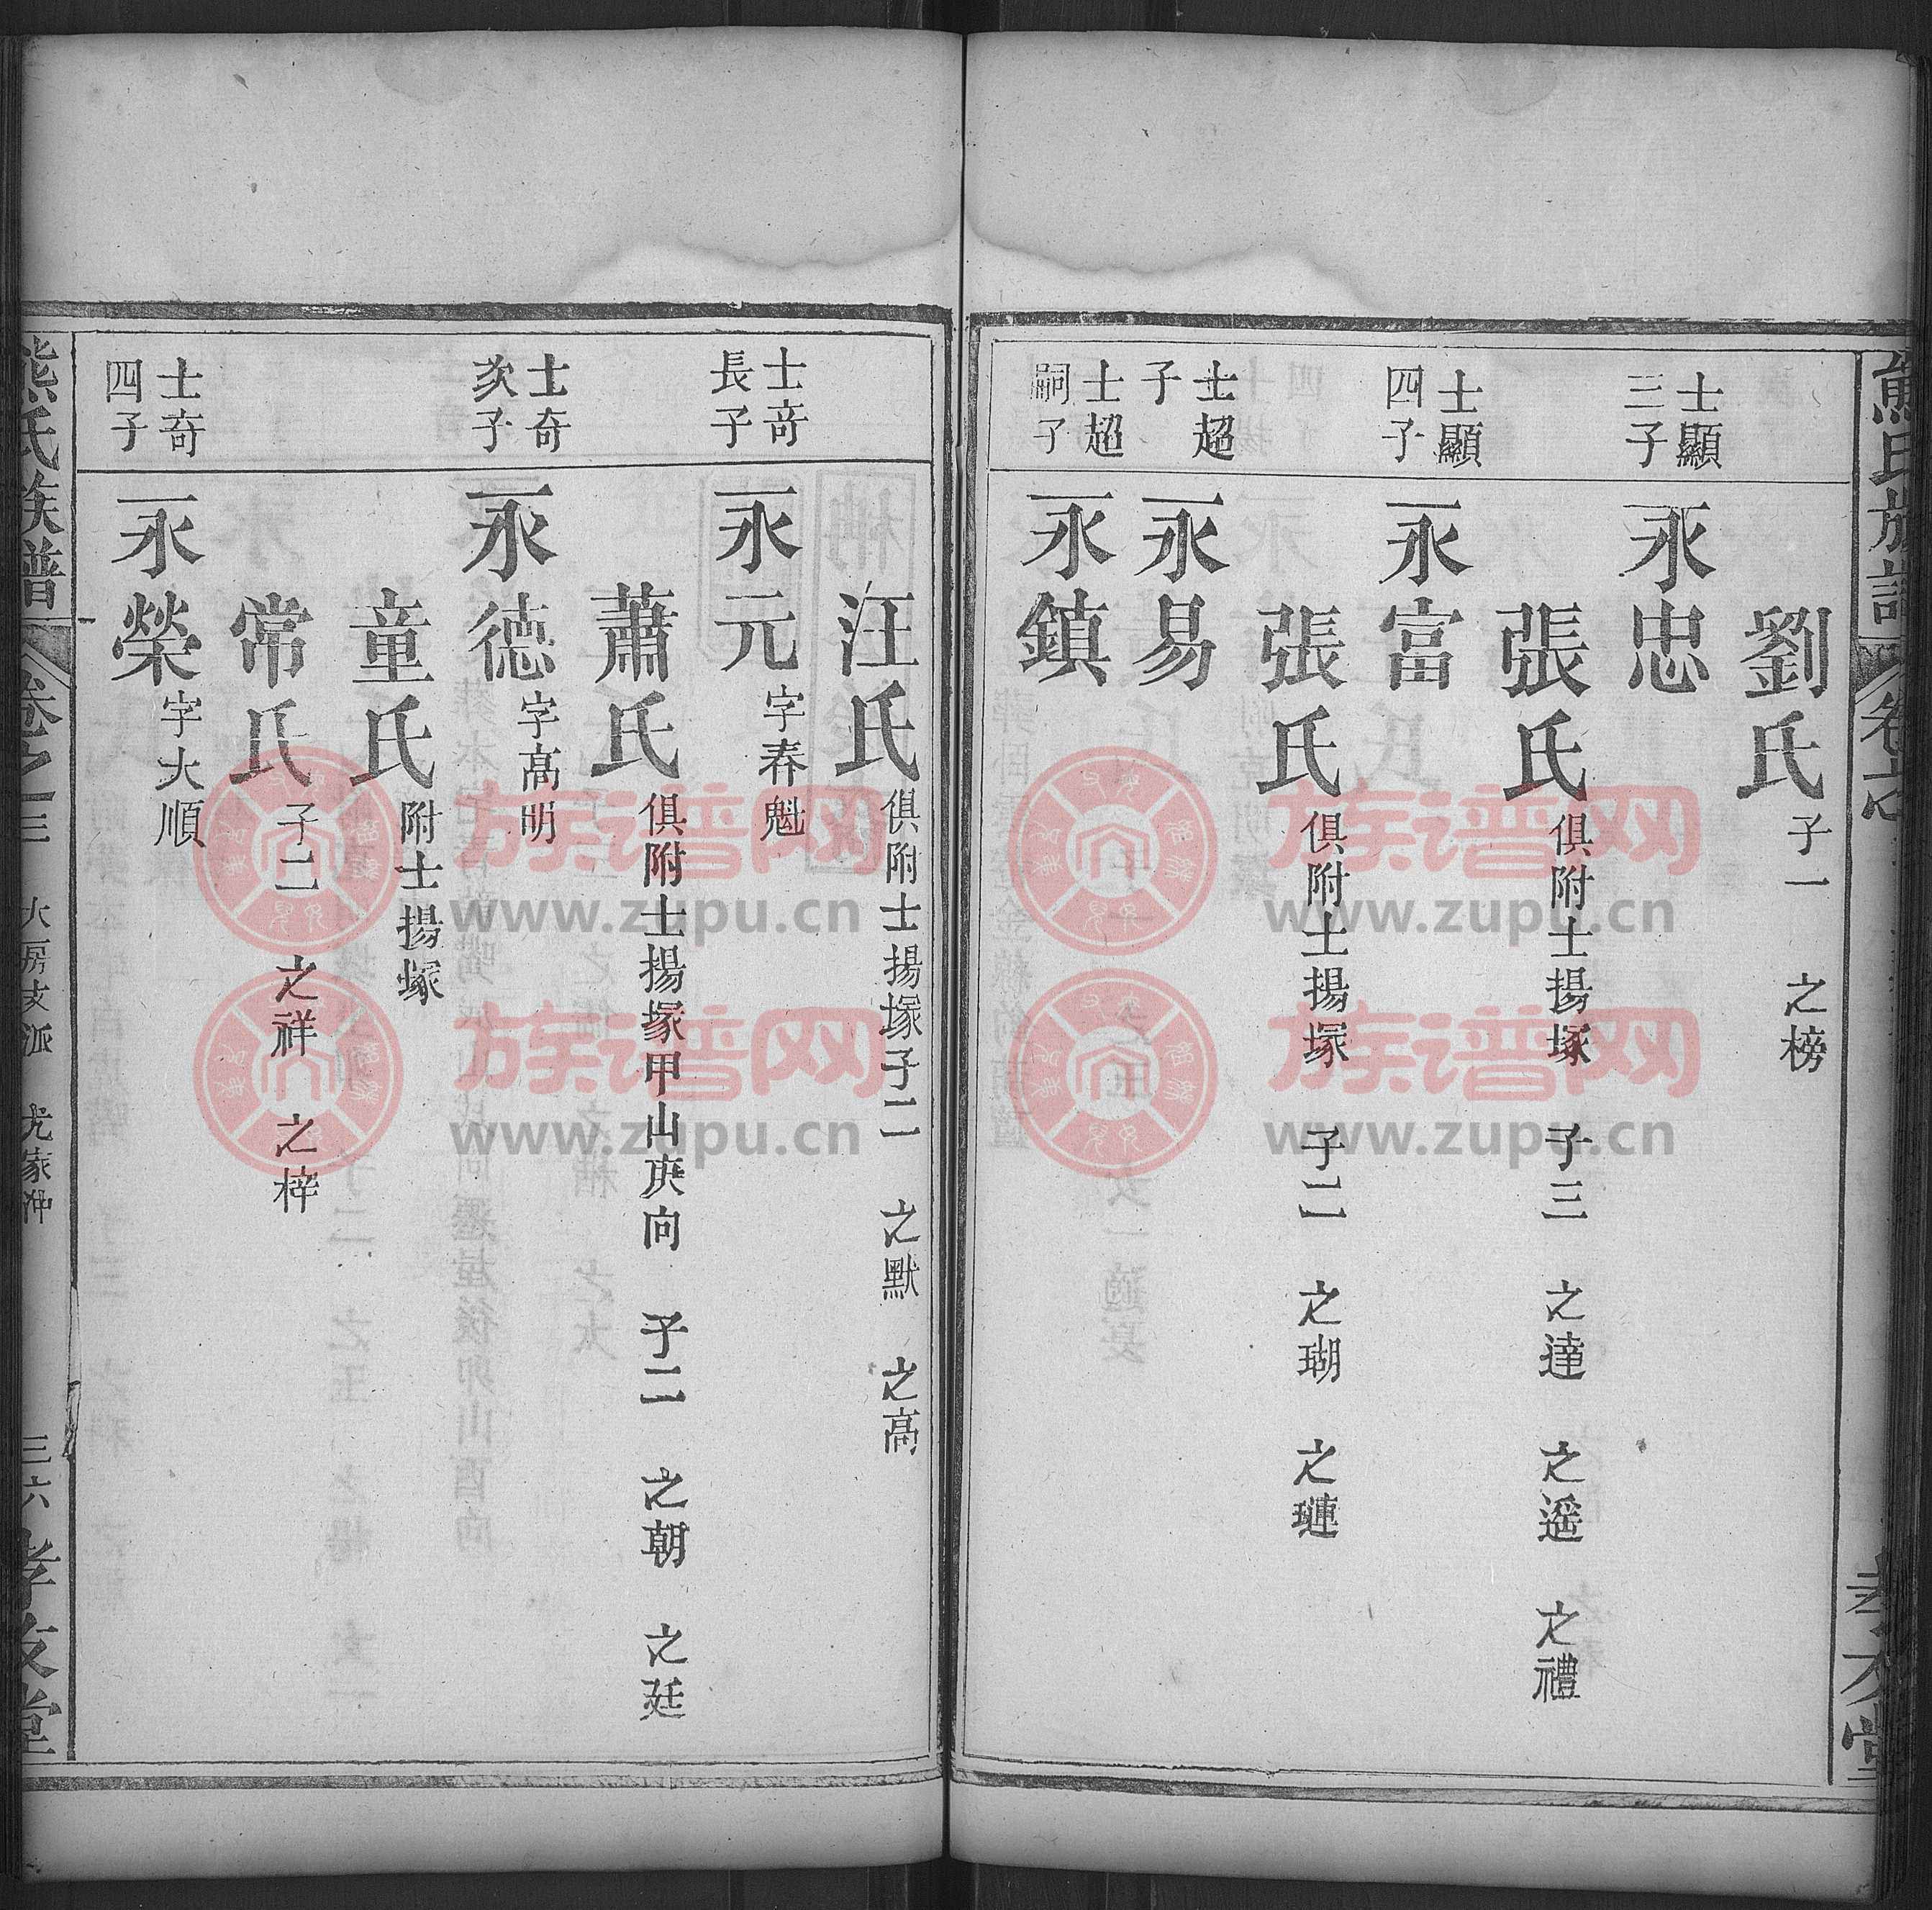 熊氏族譜
劉氏 子一 之榜
士顯三子
永忠
張氏 俱附士揚塚 子三 之達 之遥 之禮
士顯四子
永富
張氏 俱附士揚塚 子二 之瑚 之璉
士超子
永易
士超嗣子
永鎮
汪氏 俱附士揚塚子二 之默 之高
士奇長子
永元 字春魁
蕭氏 俱附士揚塚甲山庚向 子二 之朝 之廷
士奇次子
永德 字高明
童氏 附士揚塚
常氏 子二 之祥 之梓
士奇四子
永榮 字大順
熊氏族譜 卷之三 大房支派 尤家冲 三六 孝友堂
族谱网
www.zupu.cn
族谱网
www.zupu.cn
族谱网
www.zupu.cn
族谱网
www.zupu.cn